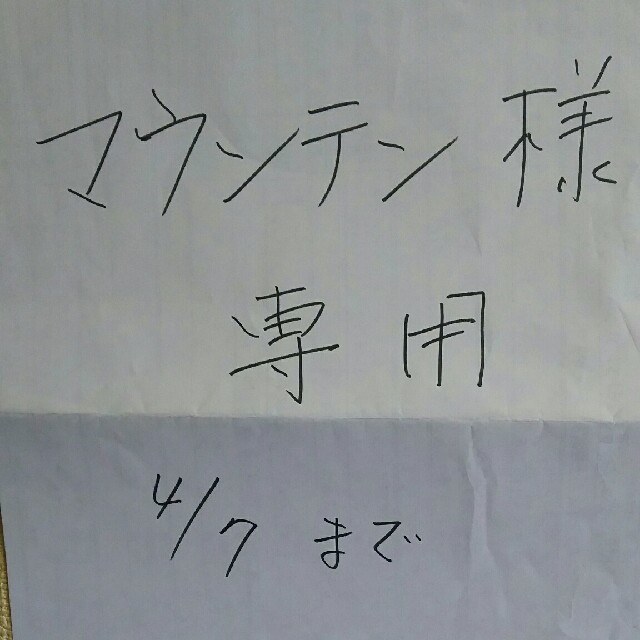 マウンテン様
専用
4/7 まで